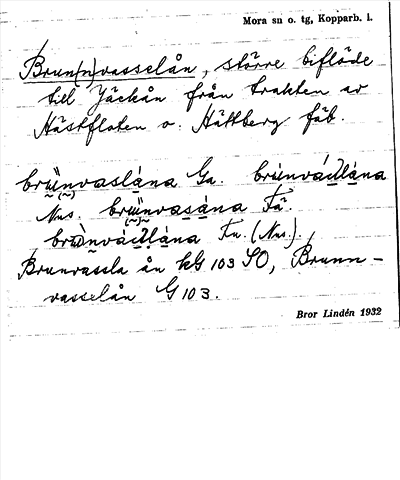 Mora sn o. tg, Kopparb. l.
Brun(n)vasselån, större biflöde
till Jäckån från trakten av
Hästfloten o. Hättberg fäb.
brü̱nvaslána Ga. brùnvád̲lána
Nus. brü̱nvasána Fä.
brùnvád̲lána Fu. (Nus.).
Brunvassla ån kG 103 SO, Brunn-
vasselån G 103.
Bror Lindén 1932